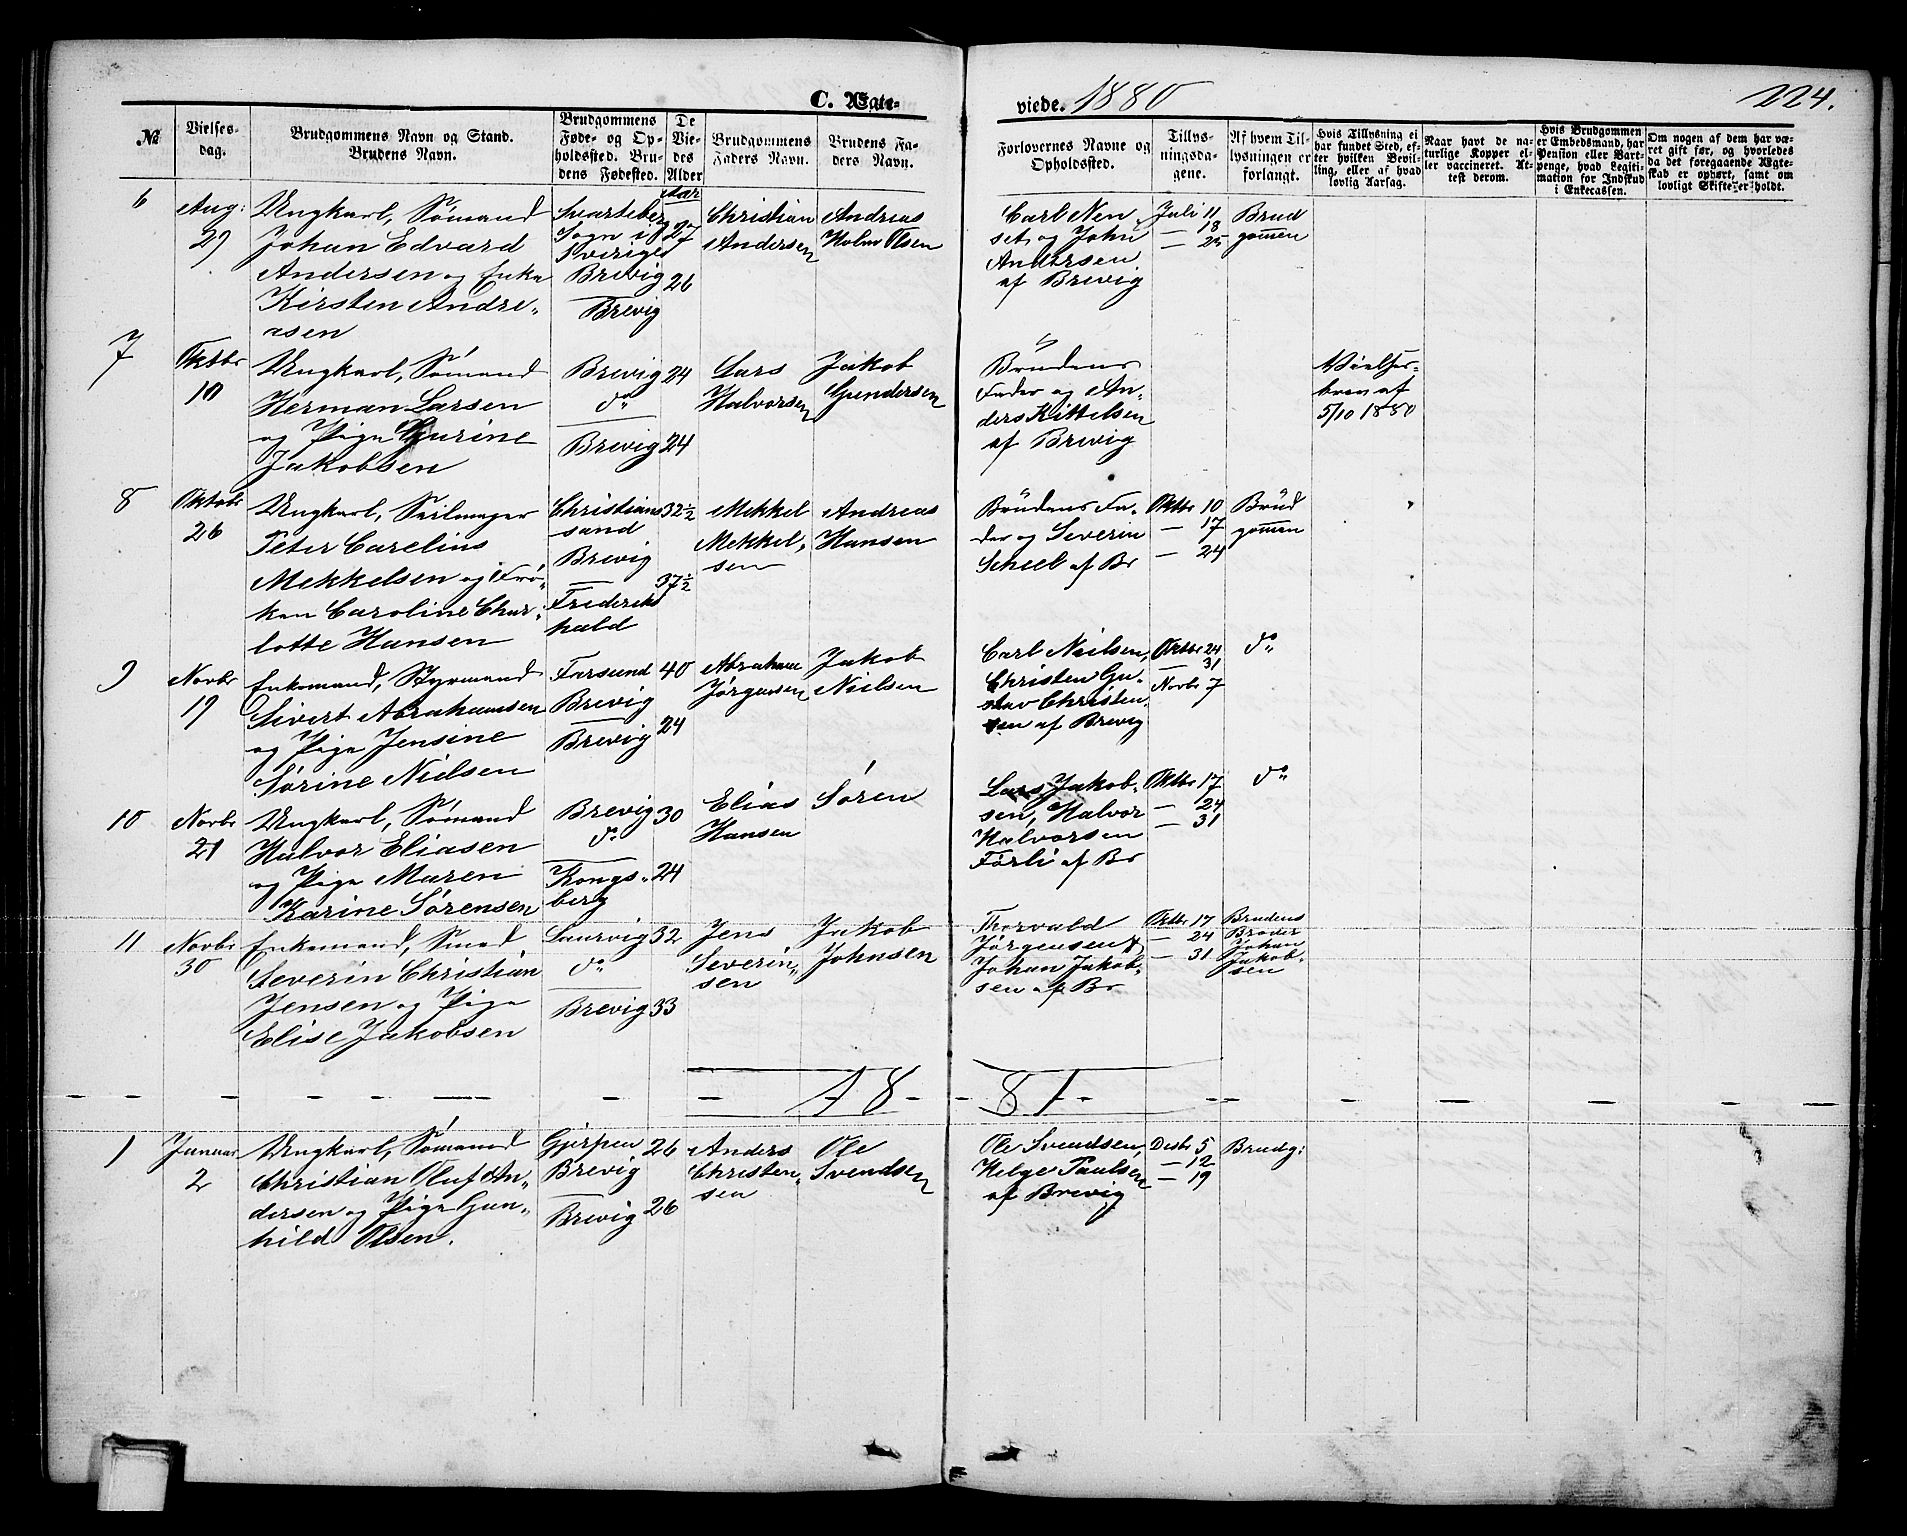 C. Ægte-
viede. 1880
224.
No
Vielses-
dag.
Brudgommens Navn og Stand.
Brudens Navn.
Brudgommens
Føde- og Op-
holdssted. Bru-
dens Fødested.
De
Vie-
des
Alder
Brudgommens
Faders Navn.
Brudens Fa-
ders Navn.
Forlovernes Navne og
Opholdssted.
Tillys-
ningsda-
gene.
Af hvem Til-
lysningen er
forlangt.
Hvis Tillysning ei
har fundet Sted, ef-
ter hvilken Bevil-
ling, eller af hvad
lovlig Aarsag.
Naar havt de na-
turlige Kopper el-
ler vaccineret. At-
test derom.
Hvis Brudgommen
er Embedsmand, har
Pension eller Vart-
penge, hvad Legiti-
mation for Indskud
i Enkecassen.
Om nogen af dem har væ-
ret gift før, og hvorledes
da det foregaaende Ægte-
skab er ophørt, samt om
lovligt Skifte er holdt.
6
Aug:
29
Ungkarl, Sømand
Johan Edvard
Andersen og Enke
Kirsten Andre-
asen
Svarteberg
Sogn i
Sverige
Brevig
Brevig
Aar
27
26
Christian
Andersen
Andreas
Holm Olsen
Carl Nen
set og John
Andersen
af Brevig
Juli 11
— 18
— 25
Brud
gommen
7
Oktbr
10
Ungkarl, Sømand
Herman Larsen
og Pige Gurine
Jakobsen
Brevig
do
Brevig
24
24
Lars
Halvorsen
Jakob
Gundersen
Brudens
Fader og An-
ders Kittelsen
af Brevig
Vielses-
brev af
5/10 1880
8
Oktobr
26
Ungkarl, Seilmager
Peter Carelius
Mekkelsen og Frø-
ken Caroline Char-
lotte Hansen
Christian
sand
Brevig
Frederiks
hald
32½
37½
Mekkel
Mekkel-
sen
Andreas
Hansen
Brudens Fa-
der og Severin
Scheel af Br
Oktbr 10
— 17
— 24
Brud
gommen
9
Novbr
19
Enkemand, Styrmand
Sivert Abrahamsen
og Pige Jensine
Sørine Nielsen
Farsund
Brevig
Brevig
40
24
Abraham
Jørgensen
Jakob
Nielsen
Carl Nielsen,
Christen Gu-
stav Christen
sen af Brevig
Oktbr 24
— 31
Novbr 7
do
10
Novbr
21
Ungkarl, Sømand
Halvor Eliasen
og Pige Maren
Karine Sørensen
Brevig
do
Kongs-
berg
30
24
Elias
Hansen
Søren
Lars Jakob-
sen, Halvor
Halvorsen
Førli af Br
Oktbr 17
— 24
— 31
do
11
Novbr
30
Enkemand, Smed
Severin Christian
Jensen og Pige
Elise Jakobsen
Laurvig
do
Brevig
32
33
Jens
Severin-
sen
Jakob
Johnsen
Thorvald
Jørgensen &
Johan Jakob-
sen af Br
Oktbr 17
— 24
— 31
Brudens
Broder
Johan
Jakob-
sen
1881
1
Januar
2
Ungkarl, Sømand
Christian Oluf An-
dersen og Pige Gun-
hild Olsen.
Gjerpen
Brevig
Brevig
26
26
Anders
Christen-
sen
Ole
Svendsen
Ole Svendsen,
Helge Paulsen
af Brevig
Desbr 5
— 12
— 19
Brudg: